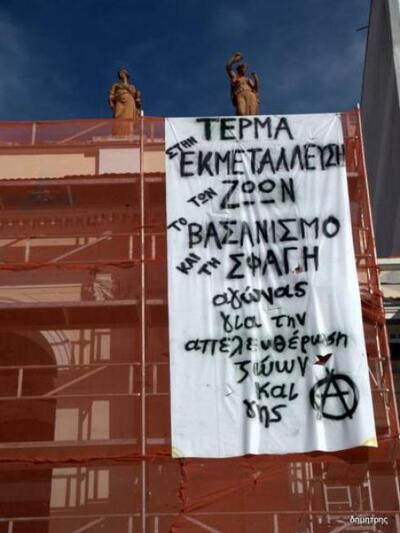 ΤΕΡΜΑ
ΣΤΗΝ
ΕΚΜΕΤΑΛΛΕΥΣΗ
ΤΩΝ
ΖΩΩΝ
ΤΟ
ΒΑΣΑΝΙΣΜΟ
ΚΑΙ ΤΗ
ΣΦΑΓΗ
αγώνας
για την
απελευθέρωση
ζώων
και
γης
δημήτρης